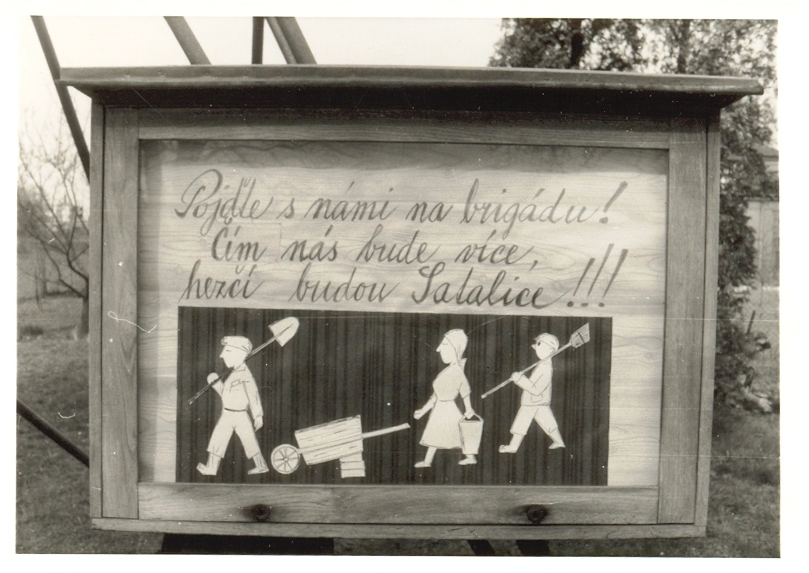 Pojďte s námi na brigádu!
Čím nás bude více,
hezčí budou Satalice!!!